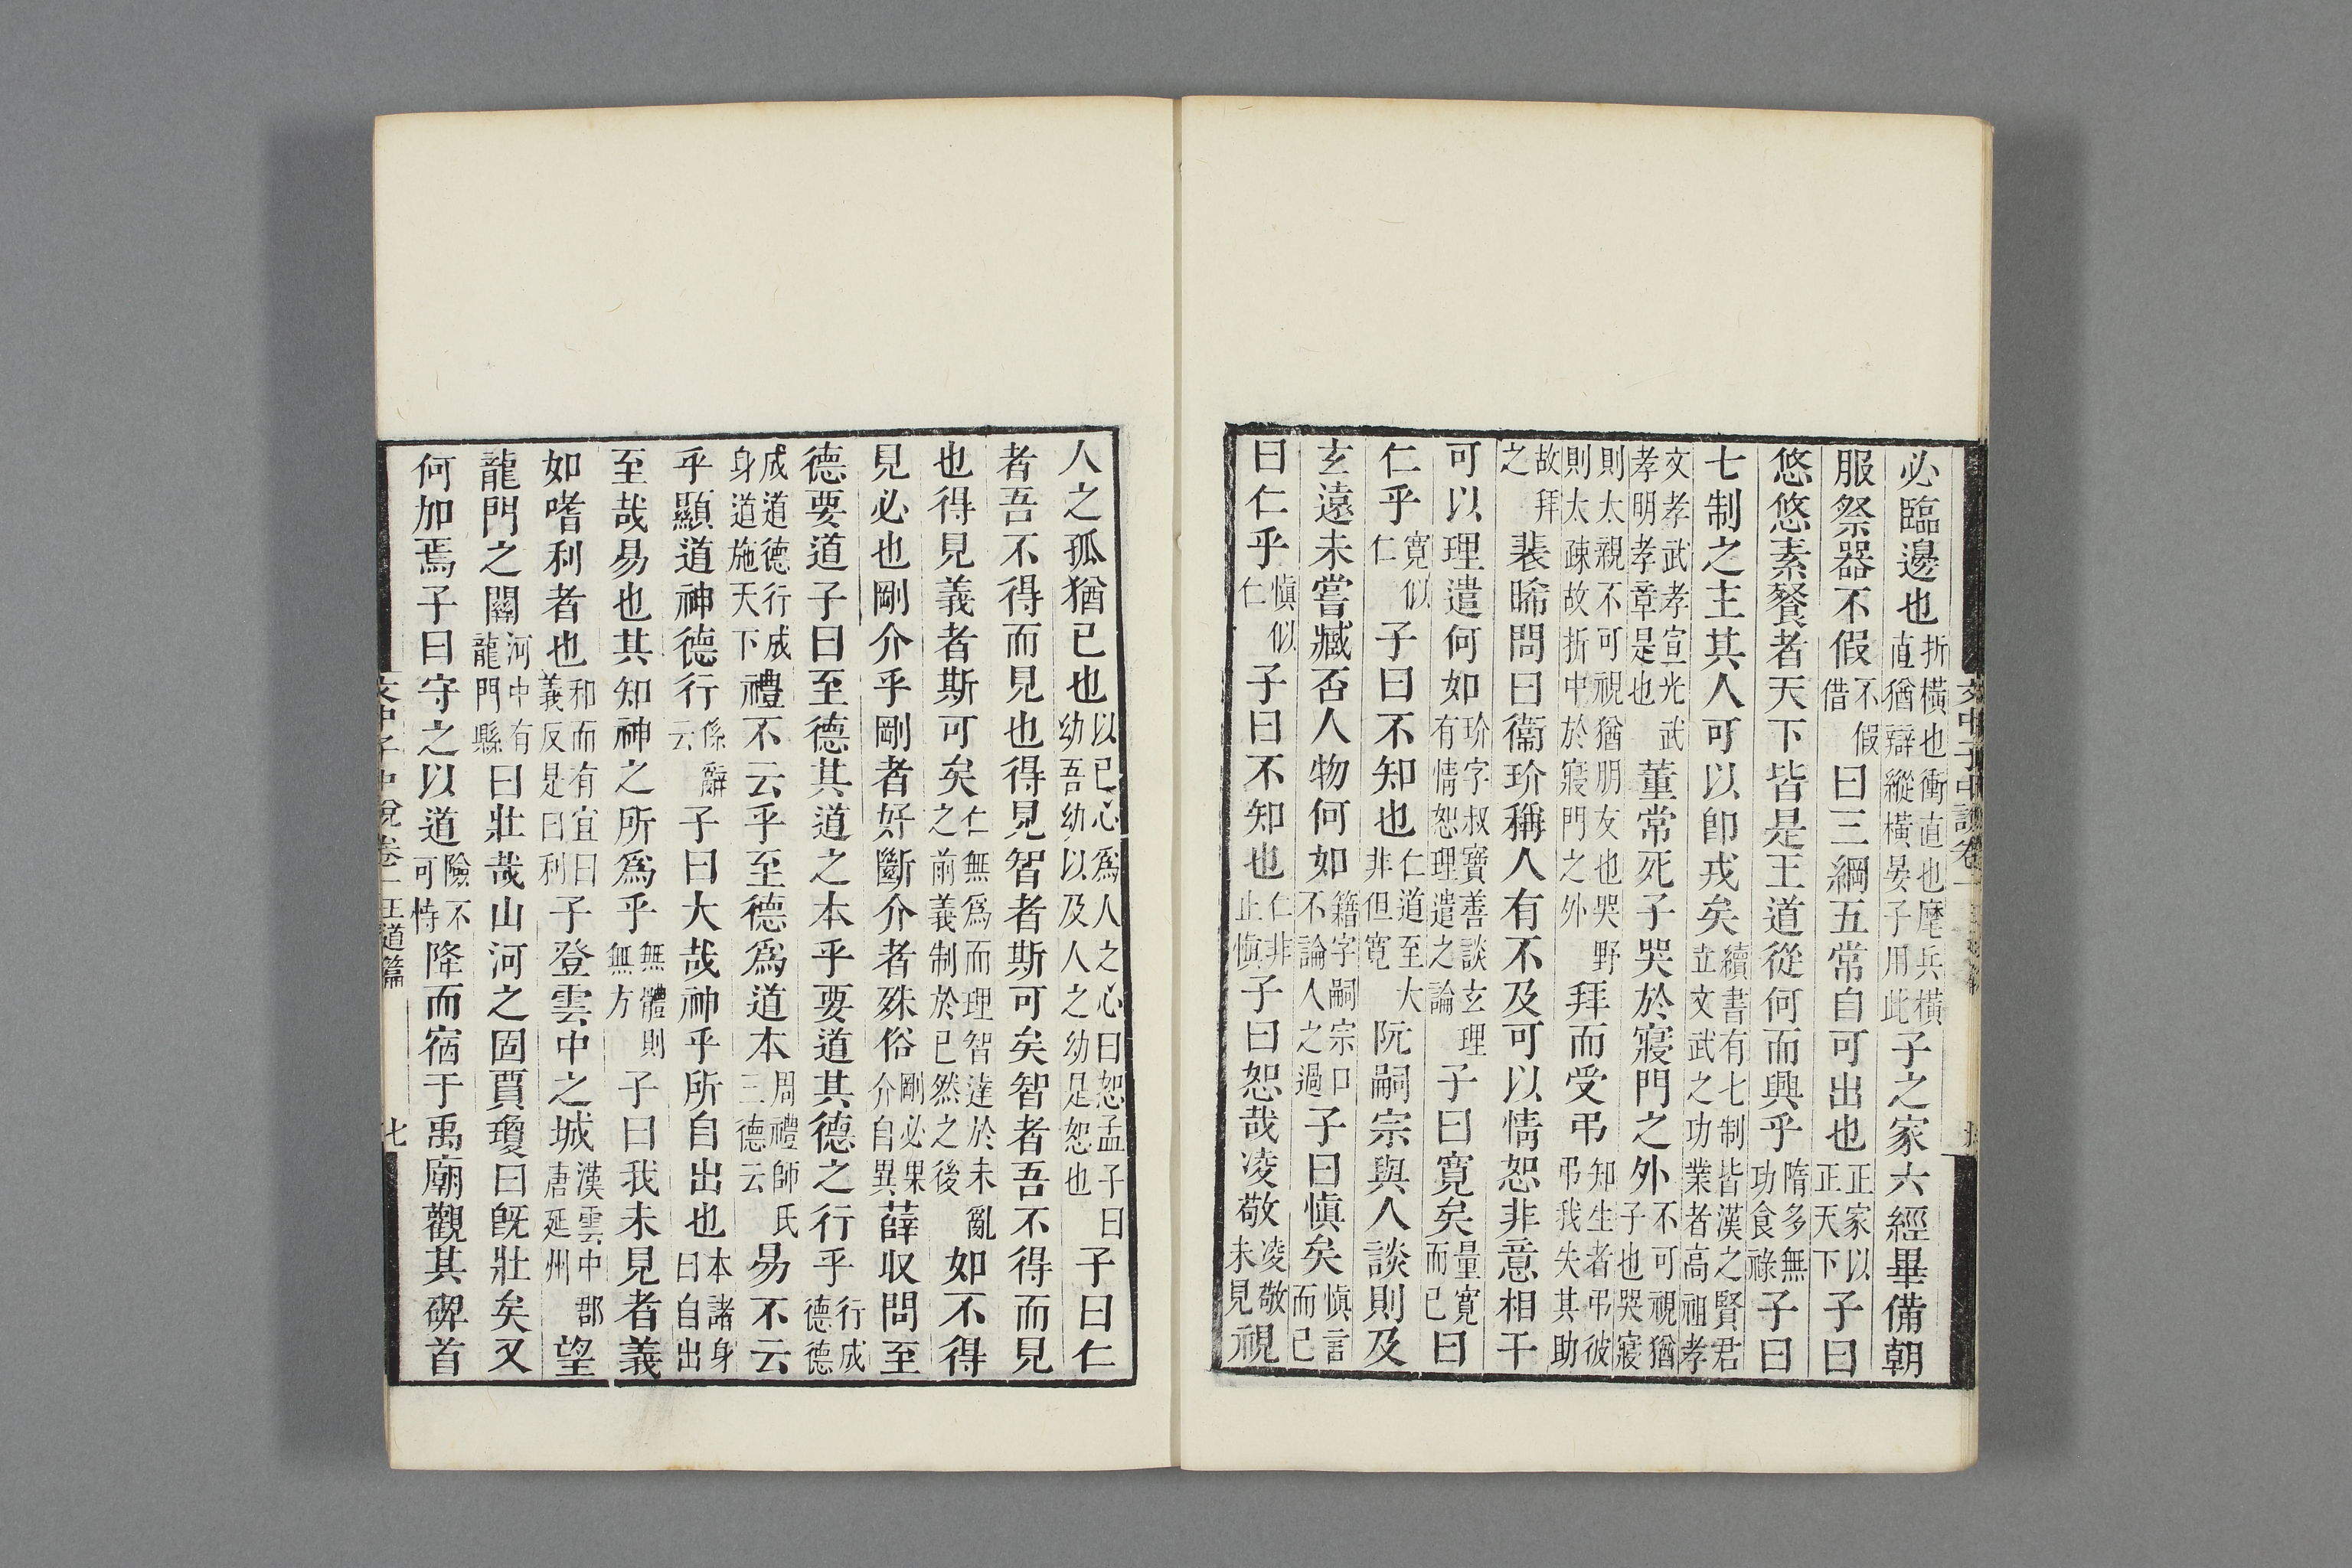 必臨邊也折橫也衝直也麾兵橫直猶辯縱橫晏子用此子之家六經畢備朝
服祭器不假不假借曰三綱五常自可出也正家以正天下子曰
悠悠素餐者天下皆是王道從何而興乎隋多無功食祿子曰
七制之主其人可以卽戎矣續書有七制皆漢之賢君立文武之功業者高祖孝
文孝武孝宣光武孝明孝章是也董常死子哭於寢門之外不可視猶子也哭寢
則太親不可視猶朋友也哭野則太疎故折中於寢門之外拜而受弔知生者弔彼弔我失其助
故拜之裴晞問曰衞玠稱人有不及可以情恕非意相干
可以理遣何如玠字叔寶善談玄理有情恕理遣之論子曰寬矣量寬而已曰
仁乎寬似仁子曰不知也仁道至大非但寬阮嗣宗與人談則及
玄遠未嘗臧否人物何如籍字嗣宗口不論人之過子曰愼矣愼言而已
曰仁乎愼似仁子曰不知也仁非止愼子曰恕哉凌敬凌敬未見視
人之孤猶已也以已心爲人之心曰恕孟子曰幼吾幼以及人之幼足恕也子曰仁
者吾不得而見也得見智者斯可矣智者吾不得而見
也得見義者斯可矣仁無爲而理智達於未亂之前義制於已然之後如不得
見必也剛介乎剛者好斷介者殊俗剛必果介自異薛収問至
德要道子曰至德其道之本乎要道其德之行乎行成德德
成道德行成身道施天下禮不云乎至德爲道本周禮師氏三德云易不云
乎顯道神德行係辭云子曰大哉神乎所自出也本諸身曰自出
至哉易也其知神之所爲乎無體則無方子曰我未見者義
如嗜利者也和而有宜曰義反是曰利子登雲中之城漢雲中郡唐延州望
龍門之關河中有龍門縣曰壯哉山河之固賈瓊曰旣壯矣又
何加焉子曰守之以道險不可恃降而宿于禹廟觀其碑首
文中子中說卷一 王道篇 七